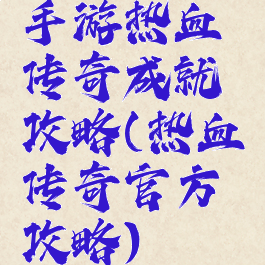 手游热血
传奇成就
攻略(热血
传奇官方
攻略)